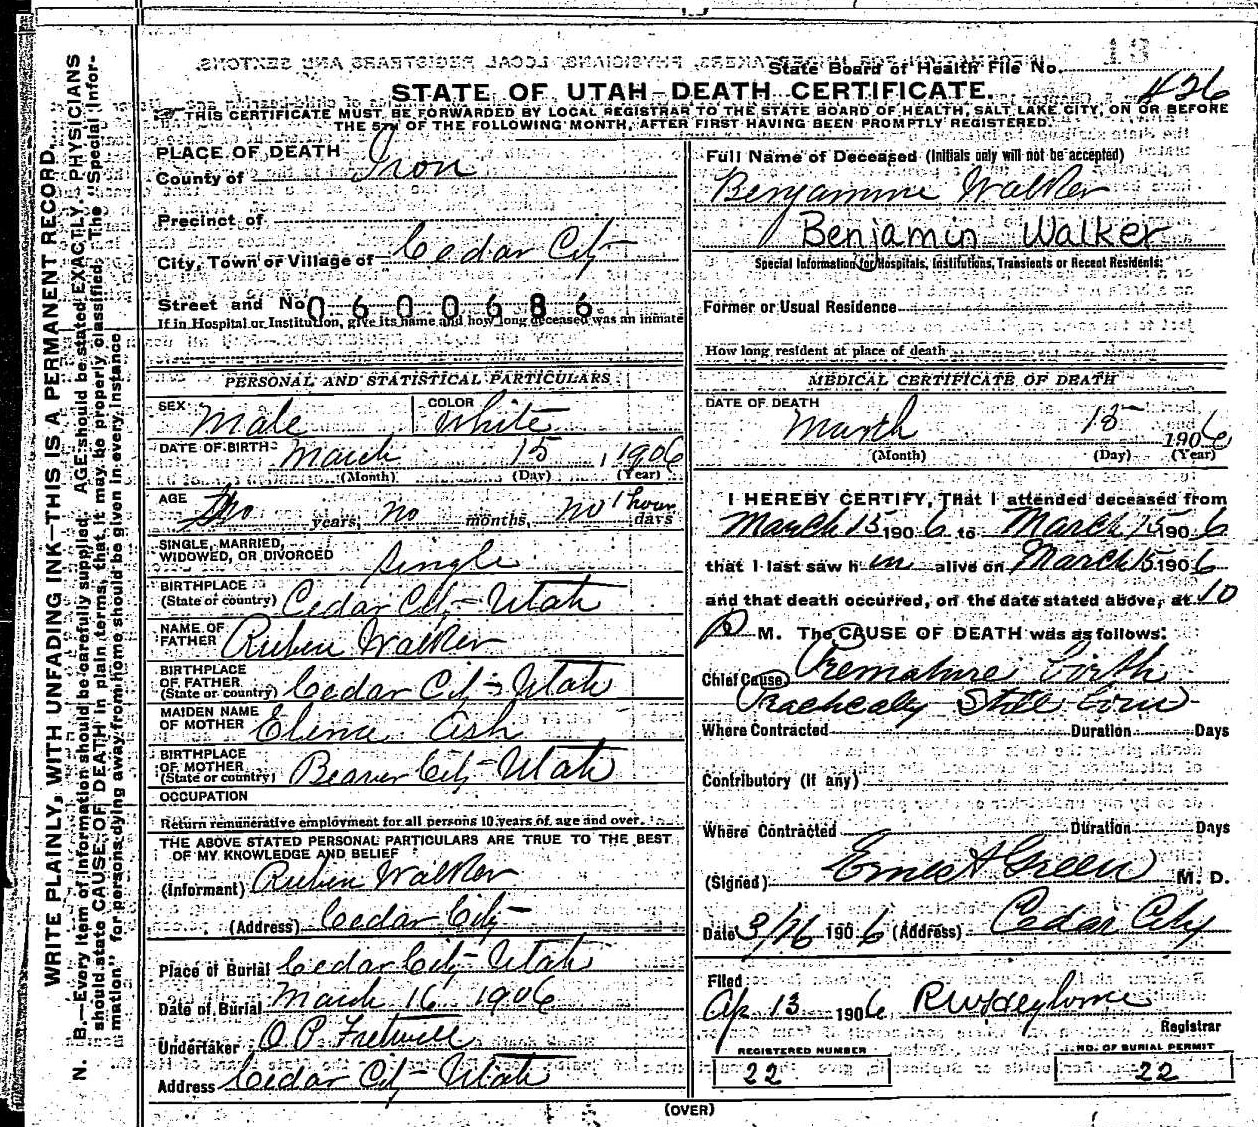 State Board of Health File No.
426
STATE OF UTAH-DEATH CERTIFICATE.
THIS CERTIFICATE MUST BE FORWARDED BY LOCAL REGISTRAR TO THE STATE BOARD OF HEALTH, SALT LAKE CITY, ON OR BEFORE
THE 5TH OF THE FOLLOWING MONTH, AFTER FIRST HAVING BEEN PROMPTLY REGISTERED.
WRITE PLAINLY, WITH UNFADING INK—THIS IS A PERMANENT RECORD.
N. B.—Every item of information should be carefully supplied. AGE should be stated EXACTLY. PHYSICIANS
should state CAUSE OF DEATH in plain terms, that it may be properly classified. The "Special Infor-
mation" for persons dying away from home should be given in every instance
PLACE OF DEATH
County of Iron
Precinct of
City, Town or Village of Cedar City
Street and No 0600686
If in Hospital or Institution, give its name and how long deceased was an inmate
PERSONAL AND STATISTICAL PARTICULARS
SEX Male COLOR White
DATE OF BIRTH March 15, 1906
(Month) (Day) (Year)
AGE no years, no months, no 1 hour days
SINGLE, MARRIED,
WIDOWED, OR DIVORCED Single
BIRTHPLACE
(State or country) Cedar City-Utah
NAME OF
FATHER Ruben Walker
BIRTHPLACE
OF FATHER
(State or country) Cedar City-Utah
MAIDEN NAME
OF MOTHER Elina Ash
BIRTHPLACE
OF MOTHER
(State or country) Beaver City-Utah
OCCUPATION
Return remunerative employment for all persons 10 years of age and over.
THE ABOVE STATED PERSONAL PARTICULARS ARE TRUE TO THE BEST
OF MY KNOWLEDGE AND BELIEF
(Informant) Ruben Walker
(Address) Cedar City-
Place of Burial Cedar City-Utah
Date of Burial March 16 1906
Undertaker O P Fretwell
Address Cedar City-Utah
Full Name of Deceased (Initials only will not be accepted)
Benjamine Walker
Benjamin Walker
Special Information for Hospitals, Institutions, Transients or Recent Residents:
Former or Usual Residence
How long resident at place of death
MEDICAL CERTIFICATE OF DEATH
DATE OF DEATH
March 15 1906
(Month) (Day) (Year)
I HEREBY CERTIFY, That I attended deceased from
March 15 1906 to March 15 1906
that I last saw him alive on March 15 1906
and that death occurred, on the date stated above, at 10
P M. The CAUSE OF DEATH was as follows:
Chief Cause Premature birth
Practically Still born
Where Contracted Duration Days
Contributory (if any)
Where Contracted Duration Days
(Signed) Ernest Green M. D.
Date 3/26 1906 (Address) Cedar City
Filed
Ap 13 1906
Registrar
REGISTERED NUMBER
22
NO. OF BURIAL PERMIT
22
(OVER)